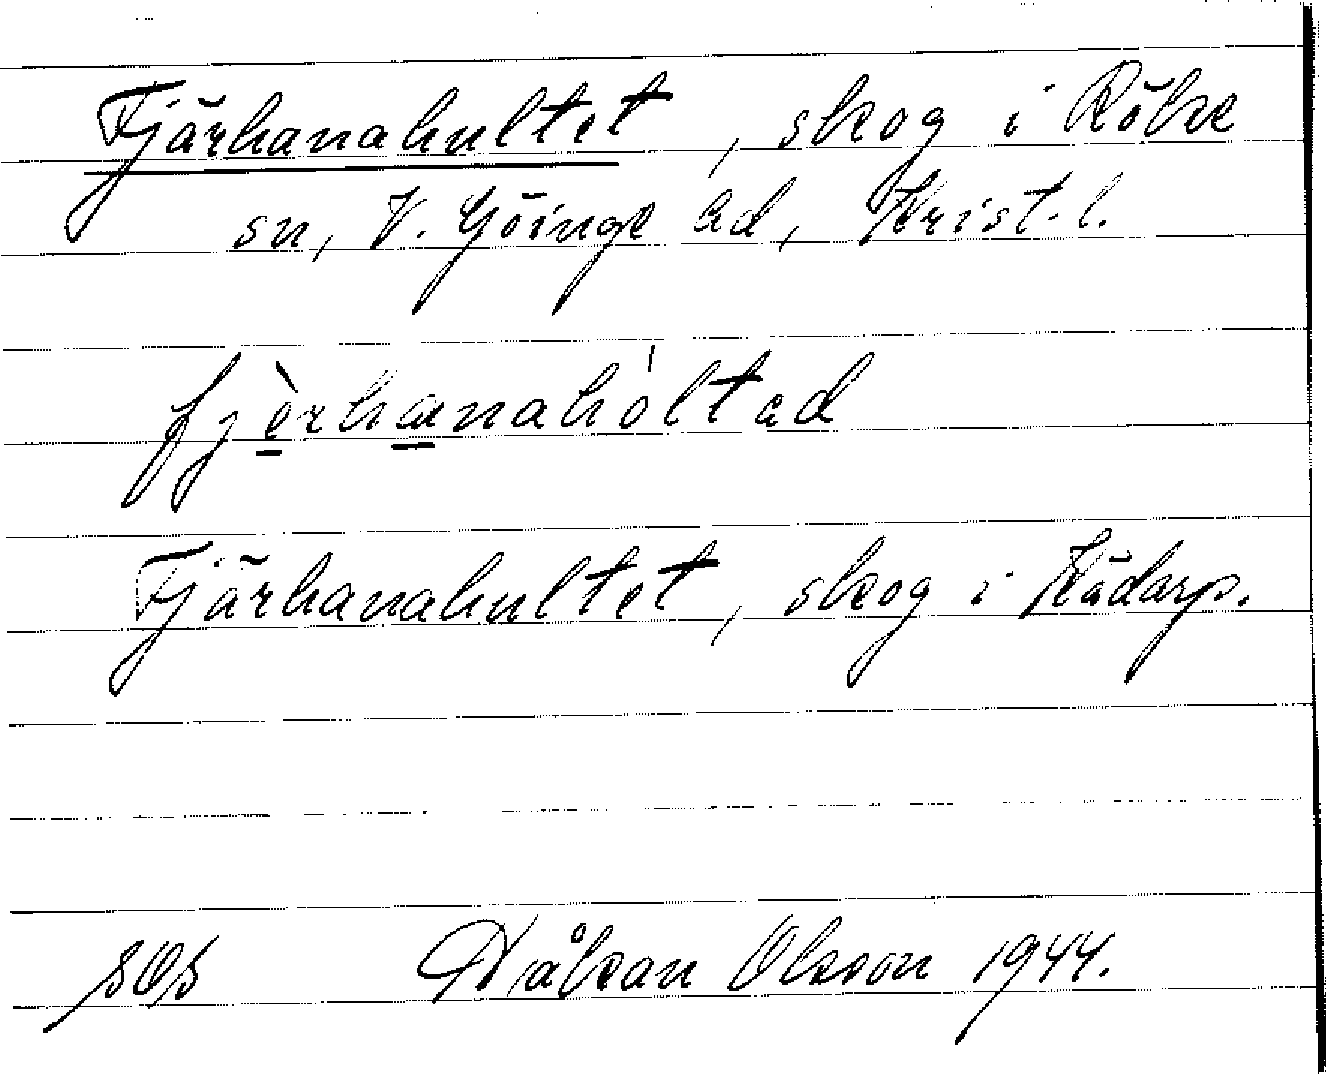 Fjärhanahultet, skog i Röke
sn, V. Göinge hd, Krist. l.
fjèrhanahóltəd
Fjärhanahultet, skog i Kådarp.
Håkan Olsson 1944.